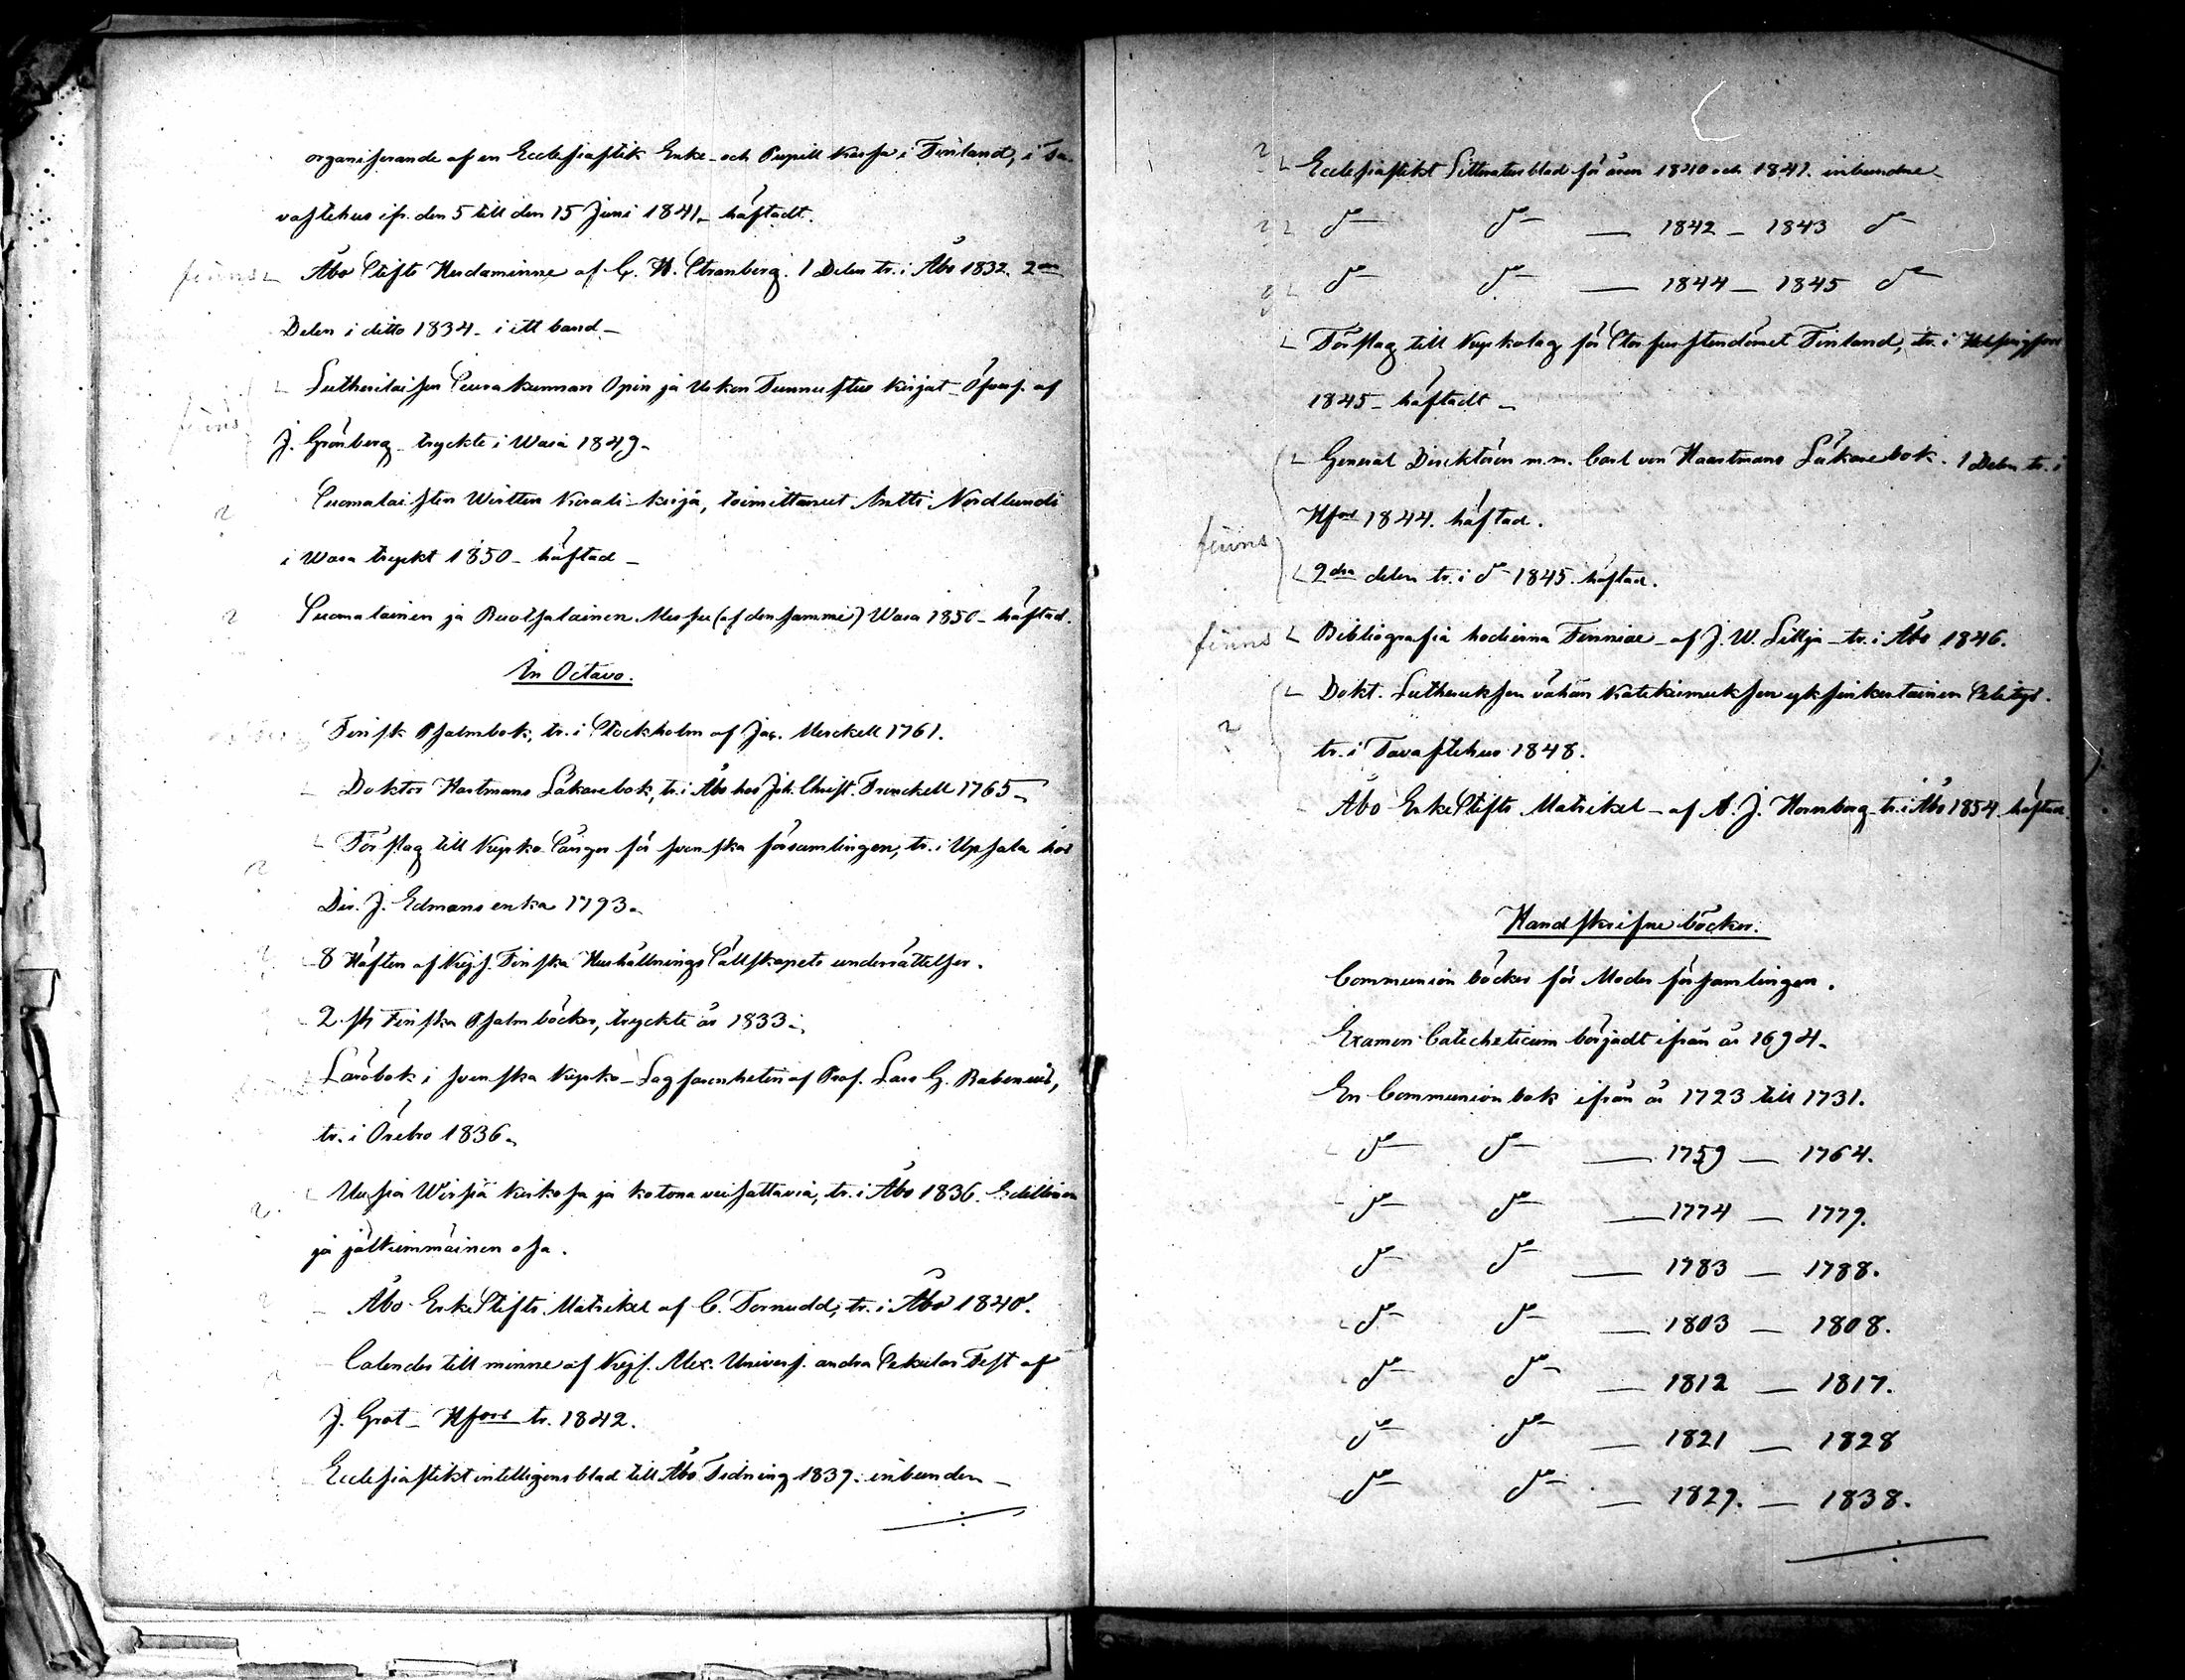 organiserande af en Ecclesiastik Enke- och Pupill Kassa i Finland, i Ta-
vastehus ifr. den 5 till den 15 Juni 1841 - häftadt.
finns Åbo Stifts Herdaminne af C. H. Stranberg. 1 Delen tr. i Åbo 1832. 2dra
Delen i ditto 1834 - i ett band -
Lutherilaisen Seurakunnan Opin ja Uskon Tunnustus kirjat - Öfvers. af
finns J. Grönberg - tryckte i Wasa 1849 -
? Suomalaisten Wirtten Nuotti-kirja, toimittanut Antti Nordlundi
i Wasa tryckt 1850 - häftad -
? Suomalainen ja Ruotsalainen Messu (af den samme) Wasa 1850 - häftad.
In Octavo.
Finsk Psalmbok, tr. i Stockholm af Jac. Merckell 1761.
Doktor Hartmans Läkarebok, tr. i Åbo hos Joh. Christ. Frenckell 1765 -
Förslag till Kyrko Sånger för svenska församlingen, tr. i Upsala hos
? Dir. J. Edmans enka 1793 -
? 8 Häften af Kejs. Finska Hushållnings Sällskapets underrättelser.
2 st Finska Psalmböcker, tryckte år 1833 -
Lärobok i svenska Kyrko-Lagfarenheten af Prof. Lars G. Rabenius,
tr. i Örebro 1836 -
? Uusia Wirsiä kirkosa ja kotona veisattavia, tr. i Åbo 1836. Edellinen
ja jälkimmäinen osa.
? Åbo ErkeStifts Matrikel af C. Tornudd, tr. i Åbo 1840.
? Calender till minne af Kejs. Alex. Univers. andra Sekular Fest af
J. Grot - Hfors tr. 1842.
Ecclesiastikt intelligensblad till Åbo Tidning 1839. inbunden -
? Ecclesiastikt Litteraturblad för åren 1840 och 1841. inbundne
? do do — 1842 — 1843 do
? do do — 1844 — 1845 do
Förslag till Kyrkolag för Storfurstendömet Finland, tr. i Helsingfors
1845 - häftadt -
General Direktören m.m. Carl von Haartmans Läkarebok. 1 Delen tr. i
Hfors 1844. häftad.
finns
2dra delen tr. i do 1845. häftad.
finns Bibliografia hodierna Fenniae - af J. W. Lillja - tr. i Åbo 1846.
Dokt. Lutheruksen vähän Katekismuksen yksinkertainen Selitys.
? tr. i Tavastehus 1848.
Åbo ErkeStifts Matrikel - af A. J. Hornborg - tr. i Åbo 1854 häftad
Handskrifne böcker.
Communion böcker för Moder församlingen.
Examen Catecheticum börjadt ifrån år 1694 -
En Communion bok ifrån år 1723 till 1731.
do do — 1759 — 1764.
do do — 1774 — 1779.
do do — 1783 — 1788.
do do — 1803 — 1808.
do do — 1812 — 1817.
do do — 1821 — 1828
do do — 1829. — 1838.